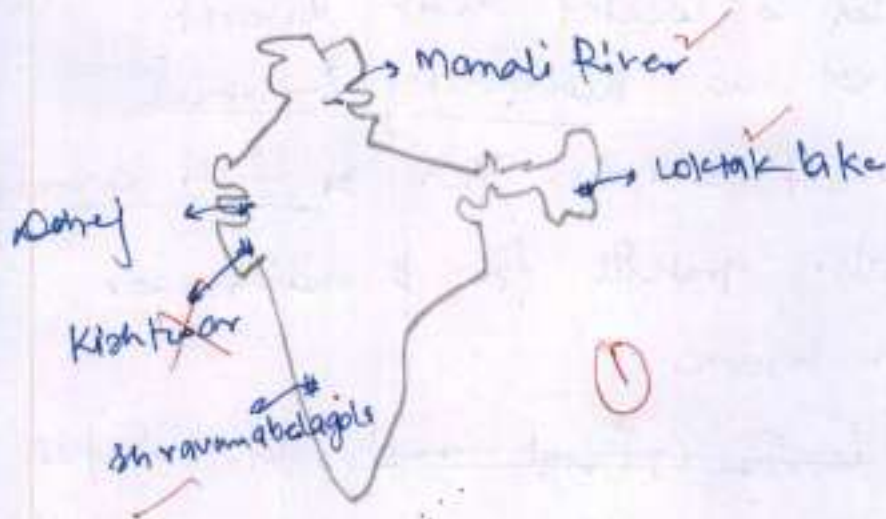 Manali River
Loktak lake
Dahej
Kishtwar
Shravanabelagola
1